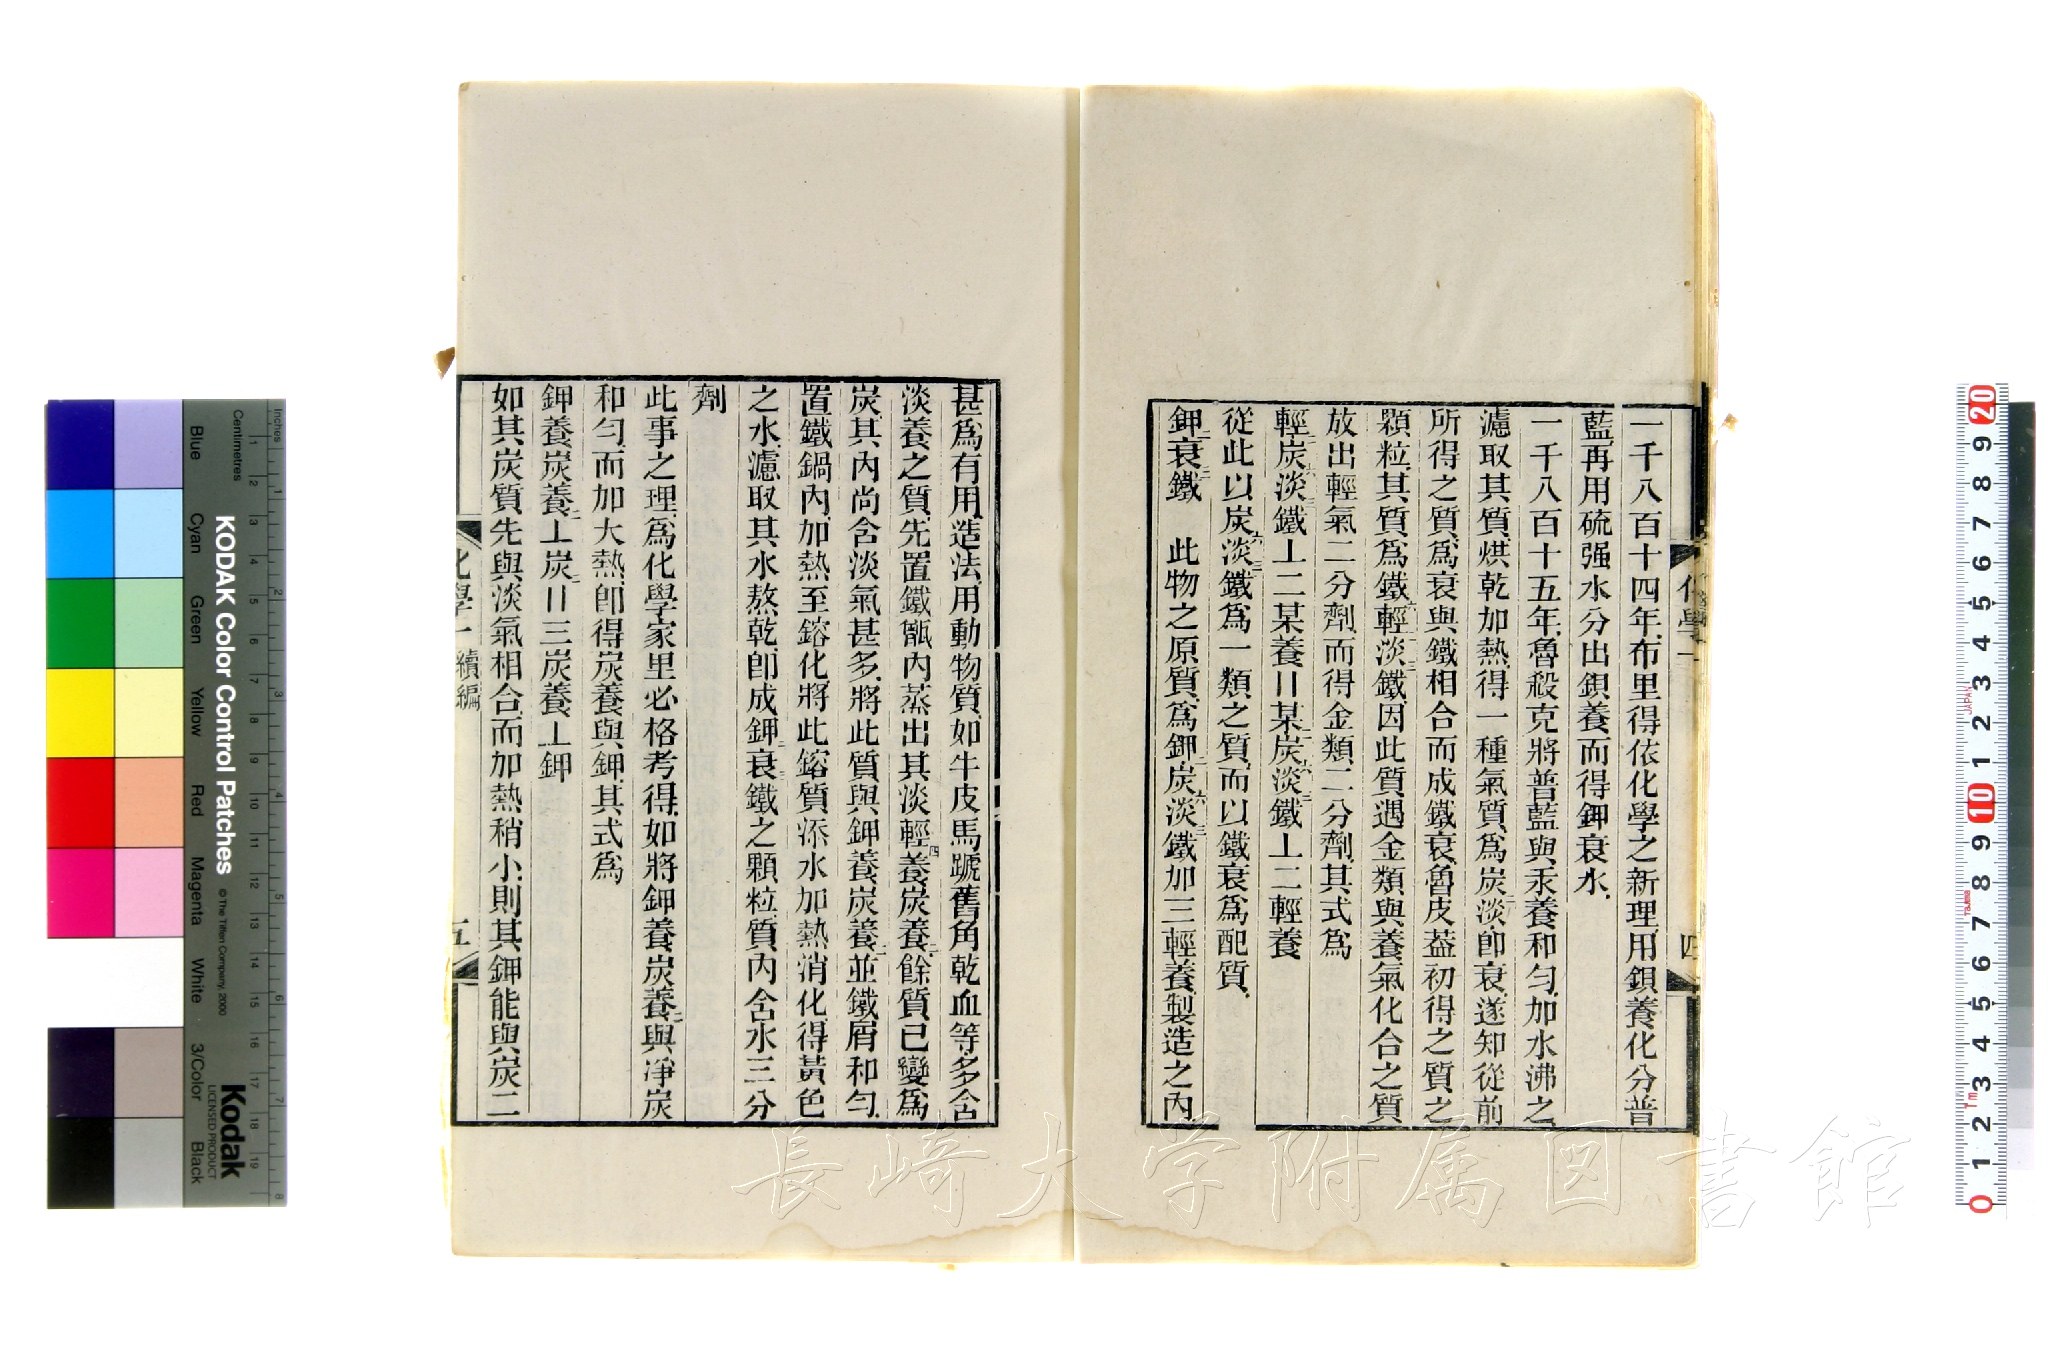 一千八百十四年、布里得依化學之新理、用鋇養化分普
藍、再用硫强水分出鋇養而得鉀衰水、
一千八百十五年、魯殺克將普藍與汞養和勻、加水沸之、
濾取其質、烘乾加熱、得一種氣質、爲炭淡、卽衰、遂知從前
所得之質、爲衰與鐵相合而成鐵衰、魯皮葢初得之質之
顆粒、其質爲鐵輕淡鐵、因此質遇金類與養氣化合之質
放出輕氣二分劑、而得金類二分劑、其式爲
輕二炭六淡三鐵⊥二某養〢某二炭六淡三鐵⊥二輕養
從此以炭六淡三鐵爲一類之質、而以鐵衰爲配質、
鉀二衰三鐵 此物之原質、爲鉀二炭六淡三鐵加三輕養、製造之內、
化學一
四
甚爲有用、造法、用動物質、如牛皮馬蹏舊角乾血等、多含
淡養之質、先置鐵甑內蒸出其淡輕四養炭養二、餘質已變爲
炭、其內尚含淡氣甚多、將此質與鉀養炭養二、並鐵屑和勻、
置鐵鍋內、加熱至鎔化、將此鎔質添水加熱消化、得黃色
之水、濾取其水熬乾、卽成鉀二衰三鐵之顆粒、質內含水三分
劑
此事之理、爲化學家里必格考得、如將鉀養炭養二與凈炭
和勻、而加大熱、卽得炭養與鉀、其式爲
鉀養炭養二⊥炭二〢三炭養⊥鉀
如其炭質先與淡氣相合、而加熱稍小、則其鉀能與炭二
化學一 續編
五
KODAK Color Control Patches
© The Tiffen Company, 2000
Kodak
LICENSED PRODUCT
Inches
Centimetres
Blue
Cyan
Green
Yellow
Red
Magenta
White
3/Color
Black
長崎大学附属図書館